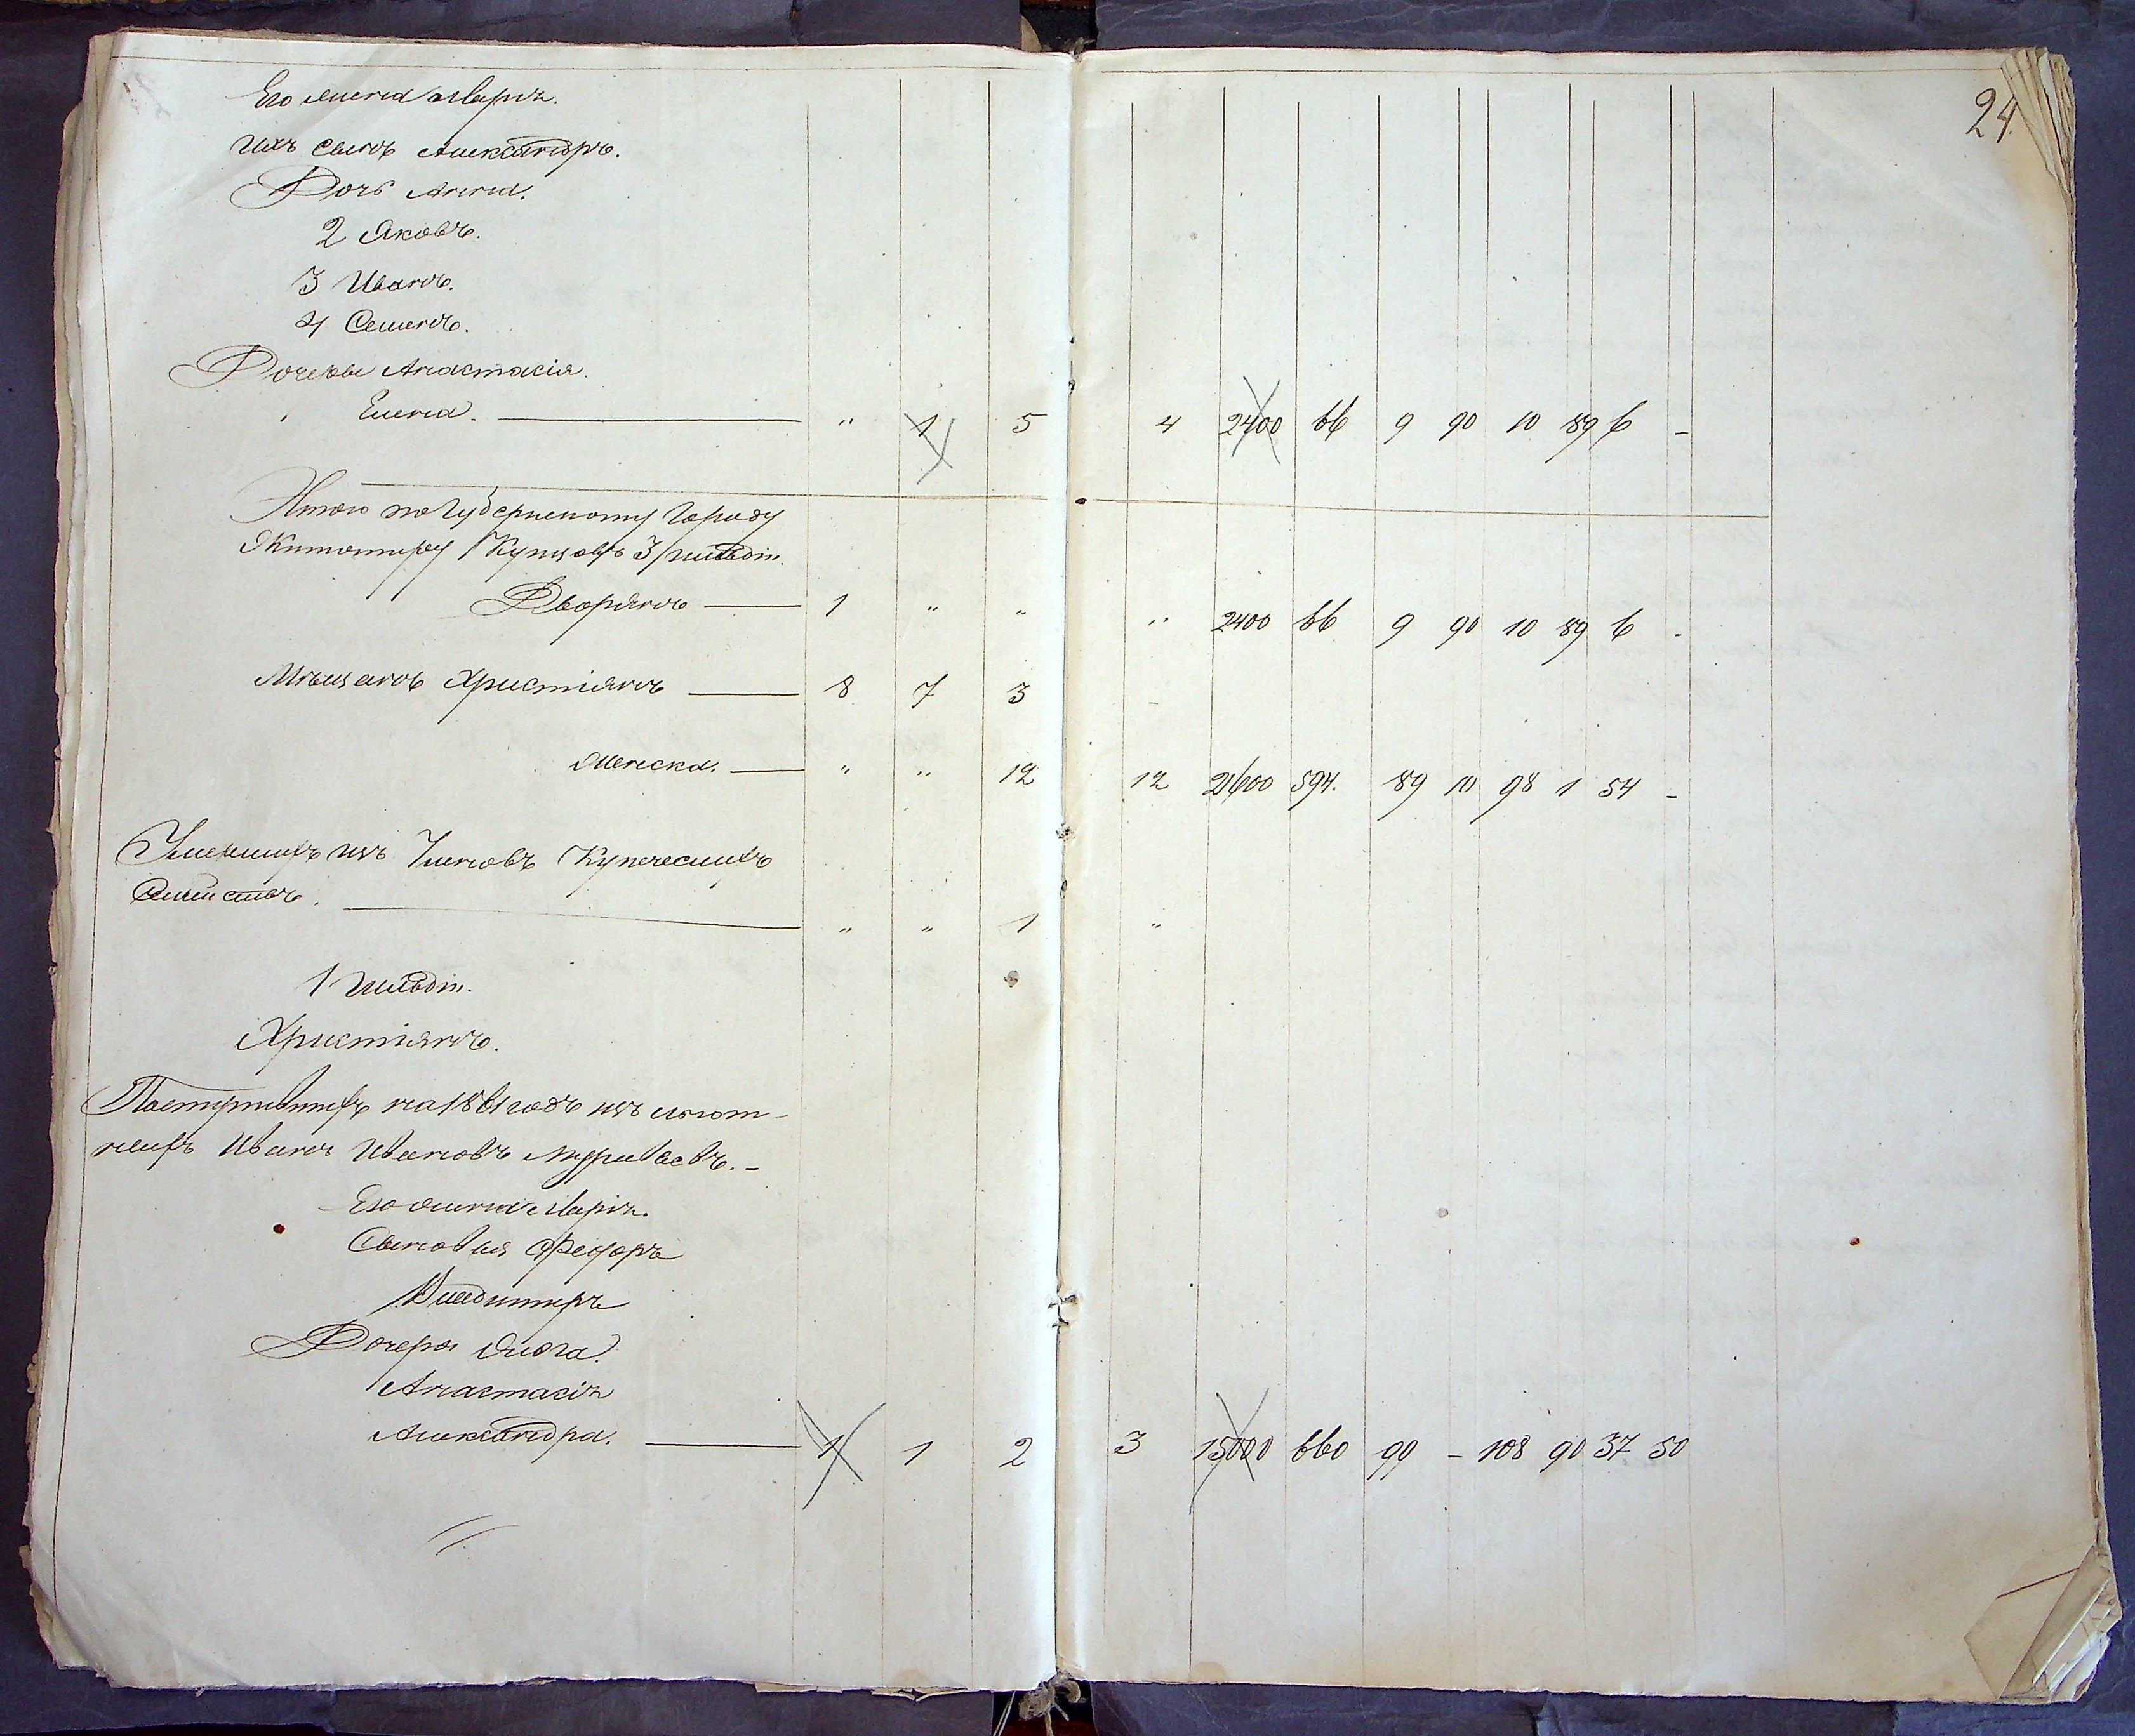 24
Его жена Марія.
Ихъ сынъ Александръ.
Дочь Анна.
2 Яковъ.
3 Иванъ.
4 Семенъ.
Дочери Анастасія.
Елена. — " 1 5 4 2400 66 9 90 10 89 6 -
Итого по Губернскому Городу
Житомиру Купцовъ 3 гильдіи.
Дворянъ — 1 " " " 2400 66 9 90 10 89 6 -
Мѣщанъ Христіянъ — 8 7 3 -
Женска. — " " 12 12 21600 594. 89 10 98 1 54 -
изъ Членовъ Купеческихъ
Семействъ. — " " 1 "
1 Гильдіи.
Христіянъ.
на 1861 годъ изъ льгот-
ныхъ Иванъ Ивановъ Муравьевъ. -
Его жена Марія.
Сыновья Федоръ
Владимиръ
Дочери Ольга.
Анастасія
Александра. — 1 1 2 3 15000 660 99 - 108 90 37 50